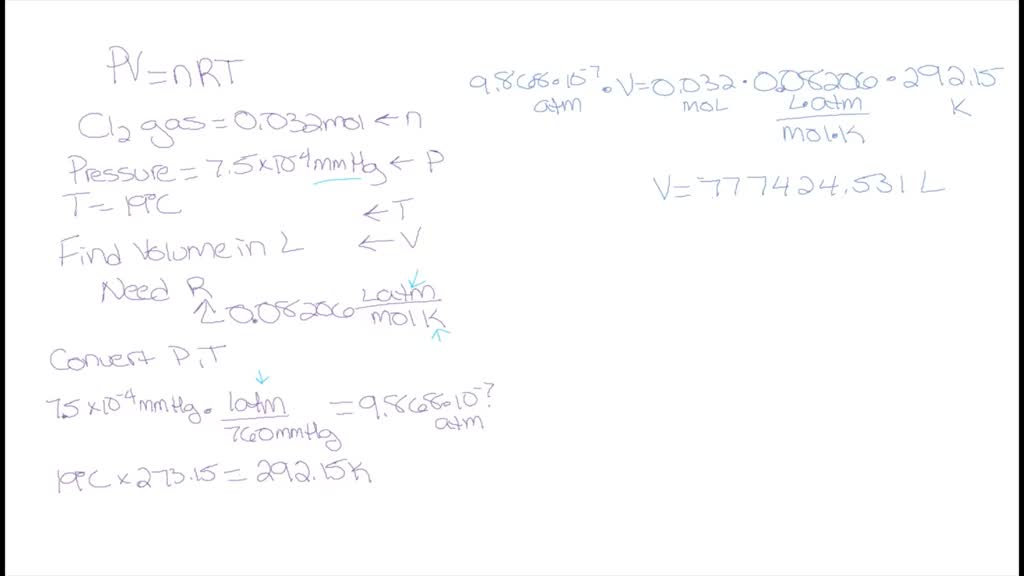 PV=nRT
Cl₂ gas=0.032mol←n
Pressure=7.5×10⁻⁴mmHg←P
T=19°C ←T
Find Volume in L ←V
Need R
↑0.08206 Latm/molK
Convert P,T
7.5×10⁻⁴mmHg• 1atm/760mmHg =9.868•10⁻⁷ atm
19°C×273.15=292.15K
9.868•10⁻⁷•V=0.032•0.08206•292.15
atm mol L•atm/mol•K K
V=777424.531 L